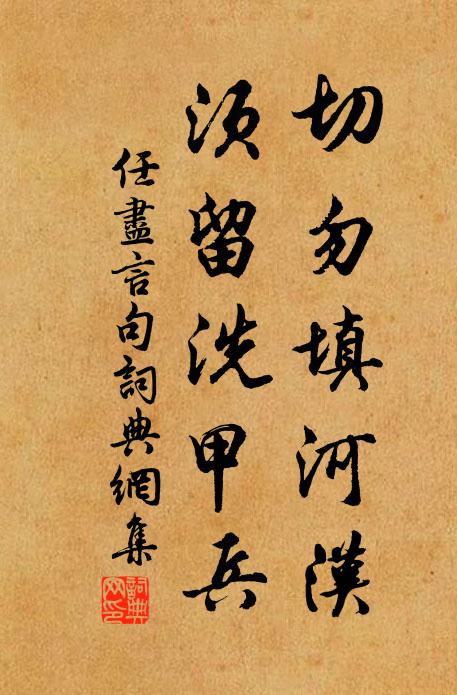 切勿填河漢
須留洗甲兵
任盡言句詞典網集
詞典網印